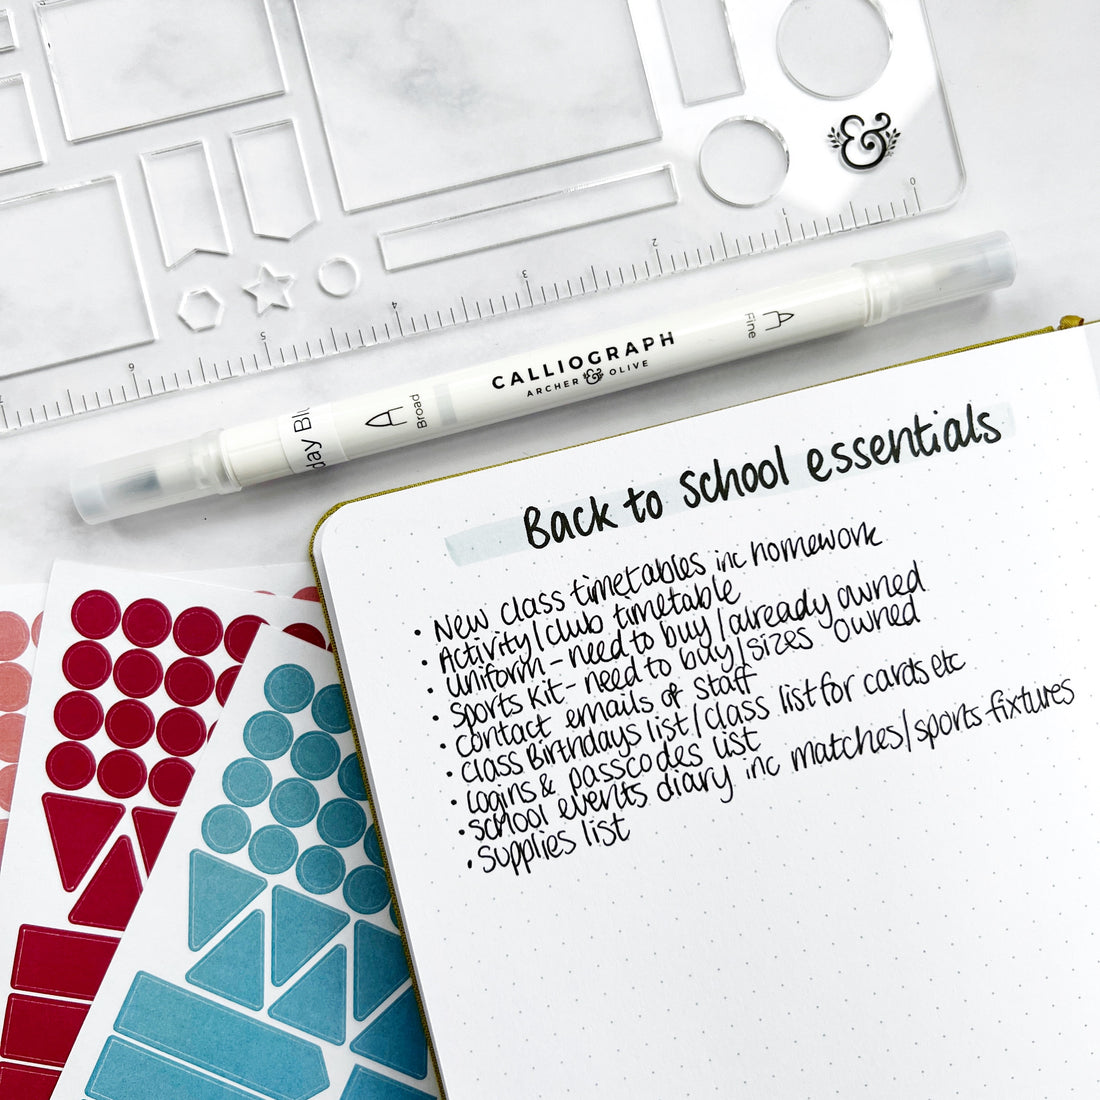 &
0
1
2
3
4
5
6
7
CALLIOGRAPH
ARCHER & OLIVE
Fine
Broad
Back to school essentials
• New class timetables inc homework
• Activity/club timetable
• Uniform - need to buy/already owned
• Sports Kit - need to buy/sizes owned
• Contact emails of staff
• Class Birthdays list/class list for cards etc
• Logins & passcodes list
• School events diary inc matches/sports fixtures
• Supplies list